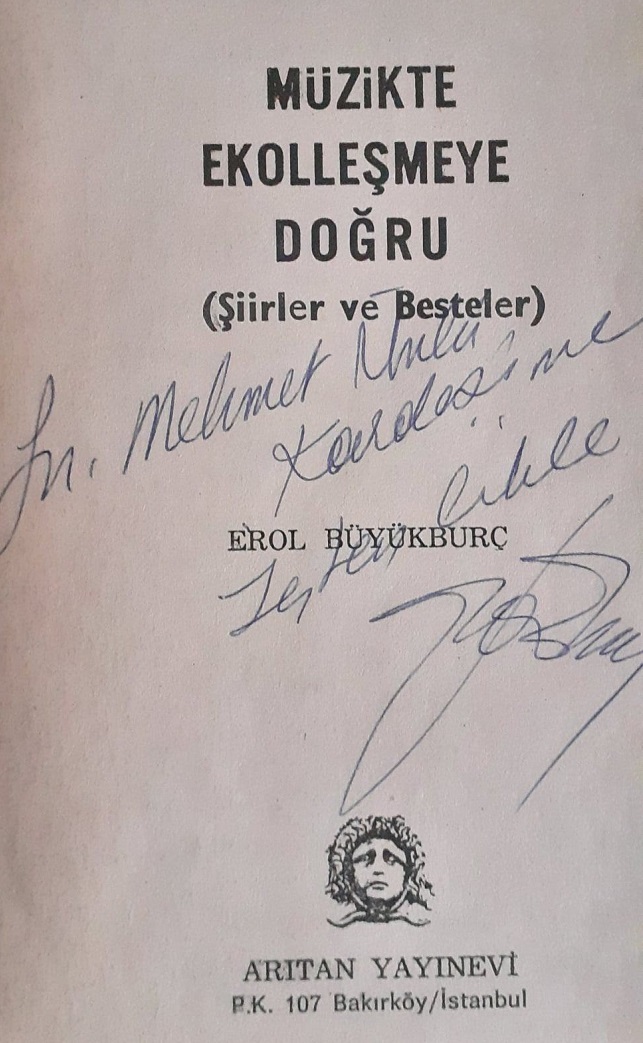 MÜZİKTE
EKOLLEŞMEYE
DOĞRU
(Şiirler ve Besteler)
Sn. Mehmet Ünlü
Kardeşime
EROL BÜYÜKBURÇ
ARITAN YAYINEVİ
P.K. 107 Bakırköy/İstanbul